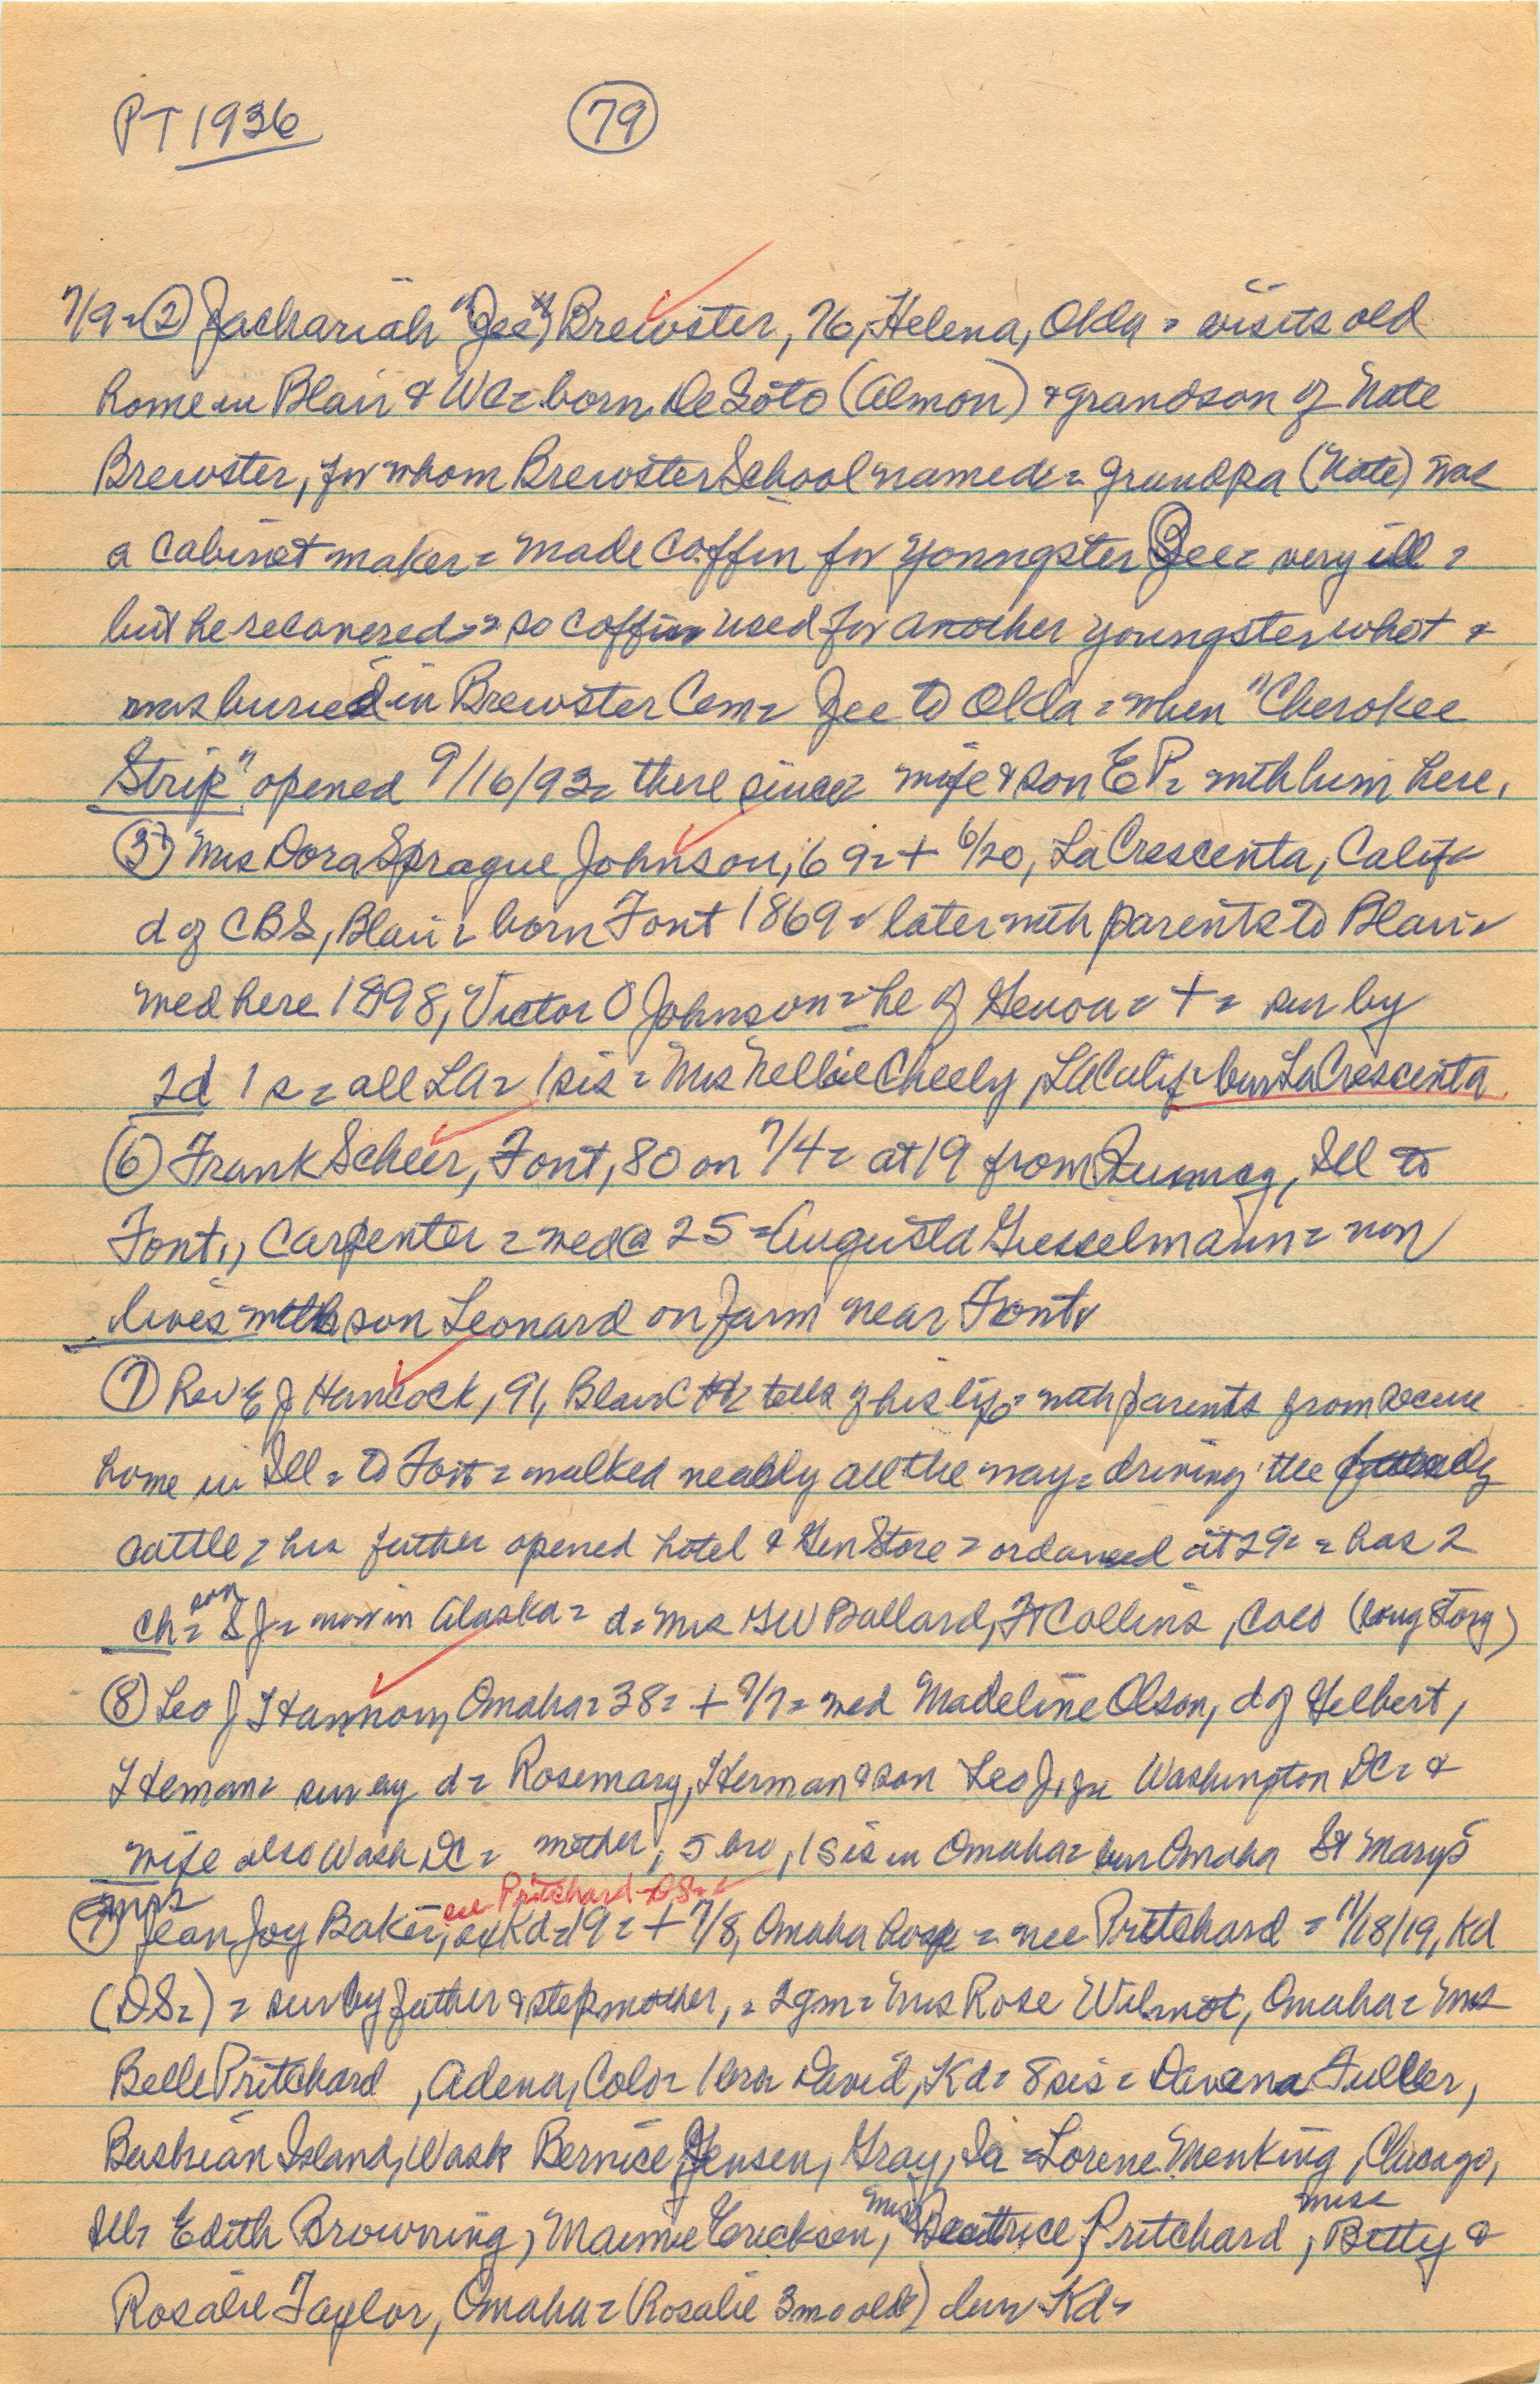 PT 1936
79
7/9 = (2) Zachariah "Zee" Brewster, 76, Helena, Okla = visits old
home in Blair & WC = born DeSoto (Almon) & grandson of Nate
Brewster, for whom Brewster School named = grandpa (Nate) was
a cabinet maker = made coffin for youngster Zee = very ill =
but he recovered = so coffin used for another youngster who +
was buried in Brewster Cem = Zee to Okla = when "Cherokee
Strip" opened 9/16/93 = there since wife & son E P = with him here.
(3) Mrs Dora Sprague Johnson, 69 = + 6/20, LaCrescenta, Calif =
d of CBS, Blair = born Font 1869 = later with parents to Blair =
wed here 1898, Victor O Johnson = he of Genoa = + = sur by
2d 1 s = all LA = 1 sis = Mrs Nellie Cheely, LA Calif = bur LaCrescenta
(6) Frank Scheer, Font, 80 on 7/4 = at 19 from Quincy, Ill to
Font., carpenter = wed @ 25 = Augusta Giesselmann = now
lives with son Leonard on farm near Font
(7) Rev E J Hancock, 91, Blair tells of his life = with parents from
home in Ill = to Font = walked nearly all the way = driving the family
cattle = his father opened hotel & Gen Store = ordained at 29 = has 2
ch = son S J = now in Alaska = d = Mrs GW Ballard, Ft Collins, Colo (long story)
(8) Leo J Hannon, Omaha = 38 = + 7/7 = wed Madeline Olson, d of Helbert,
Herman = sur by d = Rosemary, Herman & son Leo J, Jr Washington DC = &
wife also Wash DC = mother, 5 bro, 1 sis in Omaha = bur Omaha St Mary's
see Pritchard - DS =
Mrs Jean Joy Baker, ex Kd = 19 = + 7/8, Omaha hosp = nee Pritchard = 11/18/19, Kd
(DS =) = sur by father & stepmother, = 2 gm = Mrs Rose Wilmot, Omaha = Mrs
Belle Pritchard, Adena, Colo = 1 bro David, Kd = 8 sis = Davena Fuller,
Island, Wash Bernice Jensen, Gray, Ia = Lorene Menking, Chicago,
Ill = Edith Browning, Maimie Erickson, Miss Beattrice Pritchard, Miss Betty &
Rosalie Taylor, Omaha = (Rosalie 3 mo old) bur Kd =